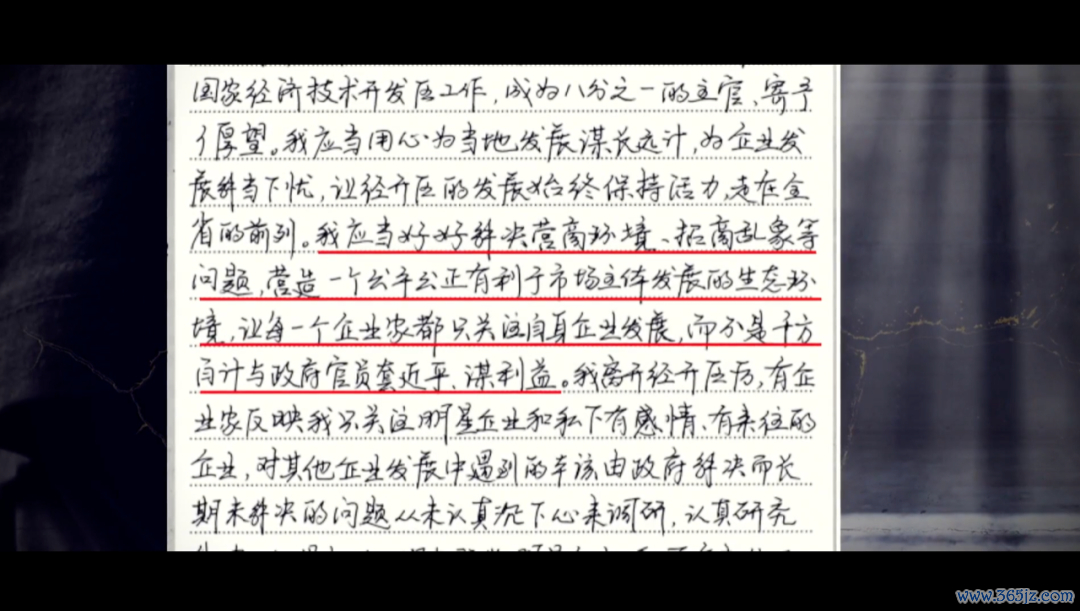 国家经济技术开发区工作，成为八分之一的主官、寄予
了厚望。我应当用心为当地发展谋长远计，为企业发
展解当下忧，让经开区的发展始终保持活力，走在全
省的前列。我应当好好解决营商环境、招商乱象等
问题，营造一个公平公正有利于市场主体发展的生态环
境，让每一个企业家都只关注自身企业发展，而不是千方
百计与政府官员套近乎、谋利益。我离开经开区后，有企
业家反映我只关注明星企业和私下有感情、有来往的
企业，对其他企业发展中遇到的本该由政府解决而长
期未解决的问题从未认真沉下心来调研，认真研究
www.365jz.com